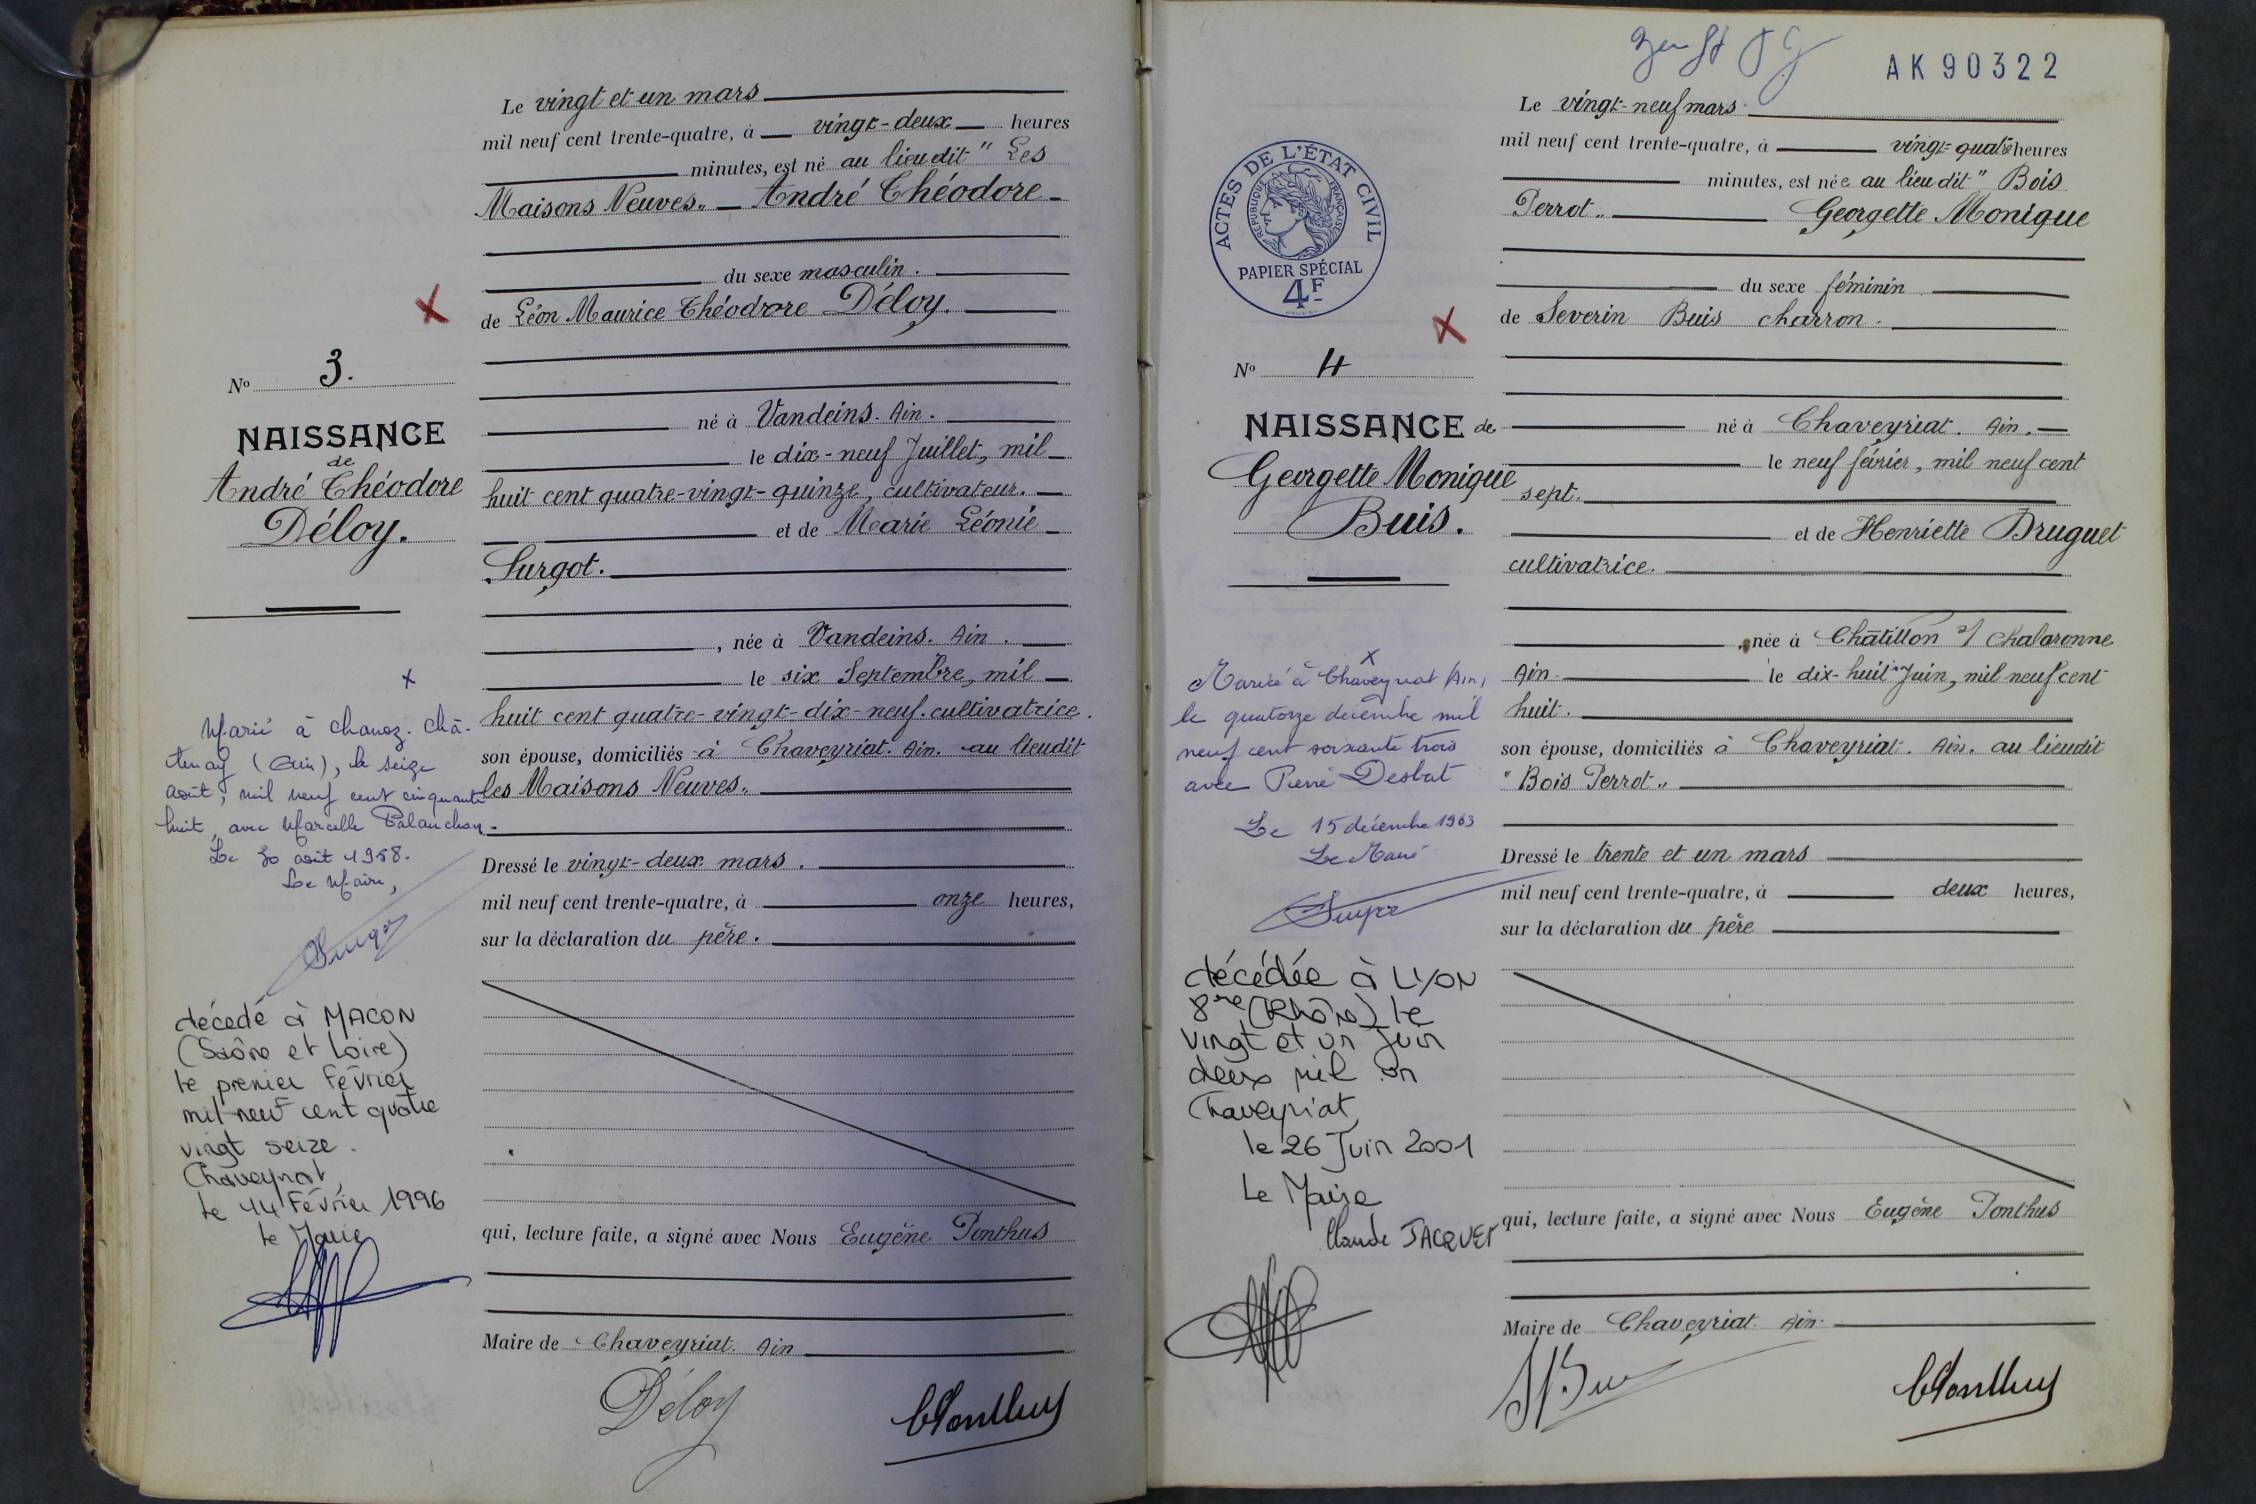 Le vingt et un mars
mil neuf cent trente-quatre, à vingt-deux heures
minutes, est né au lieu dit " Les
Maisons Neuves. André Théodore
du sexe masculin.
de Léon Maurice Théodore Déloy.
né à Vandeins. Ain.
le dix-neuf Juillet, mil
huit cent quatre-vingt-quinze, cultivateur.
et de Marie Léonie
Surgot.
, née à Vandeins. Ain.
le six Septembre, mil
huit cent quatre-vingt-dix-neuf. cultivatrice.
son épouse, domiciliés à Chaveyriat. Ain. au lieudit
les Maisons Neuves.
Dressé le vingt-deux mars.
mil neuf cent trente-quatre, à onze heures,
sur la déclaration du père.
qui, lecture faite, a signé avec Nous Eugène Ponthus
Maire de Chaveyriat. Ain
Déloy
No 3.
NAISSANCE
de
André Théodore
Déloy.
Marié à Chanoz-Châ-
tenay (Ain), le seize
août, mil neuf cent cinquante
huit, avec Marcelle Palanchon.
Le 30 août 1958.
Le Maire,
décédé à MACON
(Saône et Loire)
le premier Février
mil neuf cent quatre
vingt seize.
Chaveyriat
le 14 Février 1996
le Maire
AK90322
ACTES DE L'ÉTAT CIVIL
RÉPUBLIQUE FRANÇAISE
PAPIER SPÉCIAL
4F
No 4
NAISSANCE de
Georgette Monique
Buis.
Mariée à Chaveyriat (Ain)
le quatorze décembre mil
neuf cent soixante trois
avec Pierre Desbat
Le 15 décembre 1963
Le Maire
décédée à LYON
8me (Rhône) le
vingt et un Juin
deux mil un
Chaveyriat
le 26 Juin 2001
Le Maire
Claude JACQUET
Le vingt-neuf mars
mil neuf cent trente-quatre, à vingt-quatre heures
minutes, est née au lieu dit " Bois
Perrot.. Georgette Monique
du sexe féminin
de Severin Buis charron.
né à Chaveyriat. Ain.
le neuf février, mil neuf cent
sept.
et de Henriette Druguet
cultivatrice.
, née à Châtillon s/ Chalaronne
Ain. le dix-huit Juin, mil neuf cent
huit.
son épouse, domiciliés à Chaveyriat. Ain. au lieudit
" Bois Perrot..
Dressé le trente et un mars
mil neuf cent trente-quatre, à deux heures,
sur la déclaration du père
qui, lecture faite, a signé avec Nous Eugène Ponthus
Maire de Chaveyriat. Ain.